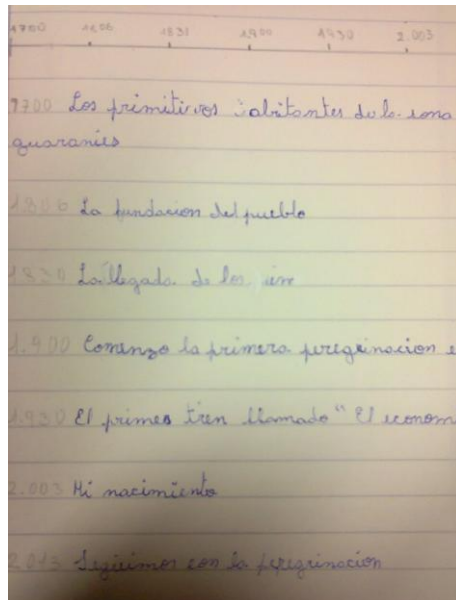 1700 1806 1831 1900 1930 2.003
1700 Los primitivos abitantes de la zona
guaranies
1.806 La fundacion del pueblo
1.830 La llegada de los
1.900 Comenzo la primera peregrinacion e
1.930 El primer tren llamado "El econom
2.003 Mi nacimiento
2.013 Seguimos con la peregrinacion